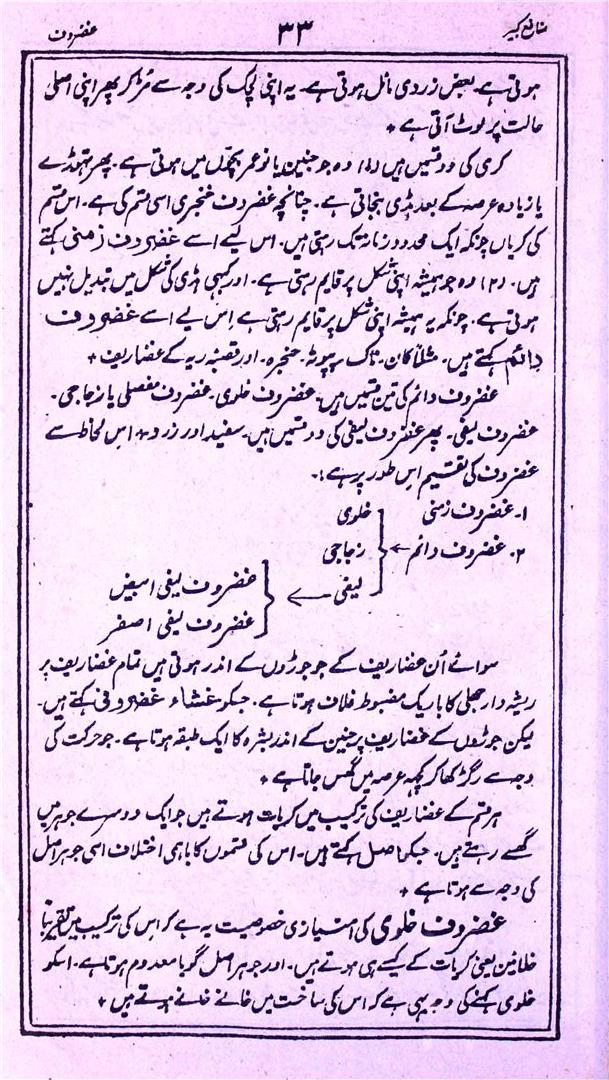 منافع کبیر ۳۳ غضروف
ہوتی ہے۔ بعض زردی مائل ہوتی ہے۔ یہ اپنی لچک کی وجہ سے مڑکر پھر اپنی اصلی
حالت پر لوٹ آتی ہے ٭
کری کی دو قسمیں ہیں (۱) وہ جو جنین یا نوعمر بچوں میں ہوتی ہے۔ پھر تھوڑے
یا زیادہ عرصہ کے بعد ہڈی بنجاتی ہے۔ چنانچہ غضروف خنجری اسی قسم کی ہے۔ اس قسم
کی کریاں چونکہ ایک محدود زمانہ تک رہتی ہیں۔ اس لیے اسے غضروف زمنی کہتے
ہیں۔ (۲) وہ جو ہمیشہ اپنی شکل پر قایم رہتی ہے۔ اور کبھی ہڈی کی شکل میں تبدیل نہیں
ہوتی ہے۔ چونکہ یہ ہمیشہ اپنی شکل پر قایم رہتی ہے اس لیے اسے غضروف
دائم کہتے ہیں۔ مثلاً کان۔ ناک۔ پپوٹہ۔ حنجرہ۔ اور قصبۂ ریہ کے غضاریف ٭
غضروف دائم کی تین قسمیں ہیں۔ غضروف خلوی۔ غضروف مفصلی یا زجاجی۔
غضروف لیفی۔ پھر غضروف لیفی کی دو قسمیں ہیں۔ سفید اور زرد ٭ اس لحاظ سے
غضروف کی تقسیم اس طور پر ہے:۔
۱۔ غضروف زمنی خلوی
۲۔ غضروف دائم ← زجاجی
لیفی ← غضروف لیفی ابیض
غضروف لیفی اصفر
سوائے اُن غضاریف کے جو جوڑوں کے اندر ہوتی ہیں تمام غضاریف پر
ریشہ دار جھلی کا باریک مضبوط غلاف ہوتا ہے۔ جسکو غشاء غضروفی کہتے ہیں۔
لیکن جوڑوں کے غضاریف پر جنین کے اندر بشرہ کا ایک طبقہ ہوتا ہے۔ جو حرکت کی
وجہ سے رگڑ کھا کر کچھ عرصہ میں گھس جاتا ہے ٭
ہر قسم کے غضاریف کی ترکیب میں کریات ہوتے ہیں جو ایک دوسرے جوہر میں
گھسے رہتے ہیں۔ جسکو اصل کہتے ہیں۔ اس کی قسموں کا باہمی اختلاف اسی جوہر اصل
کی وجہ سے ہوتا ہے ٭
غضروف خلوی کی امتیازی خصوصیت یہ ہے کہ اس کی ترکیب میں تقریباً
خلائین یعنی کریات کے کیسے ہی ہوتے ہیں۔ اور جوہر اصل گویا معدوم ہوتا ہے۔ اسکو
خلوی کہنے کی وجہ یہی ہے کہ اس کی ساخت میں خانے خانے ہوتے ہیں ٭